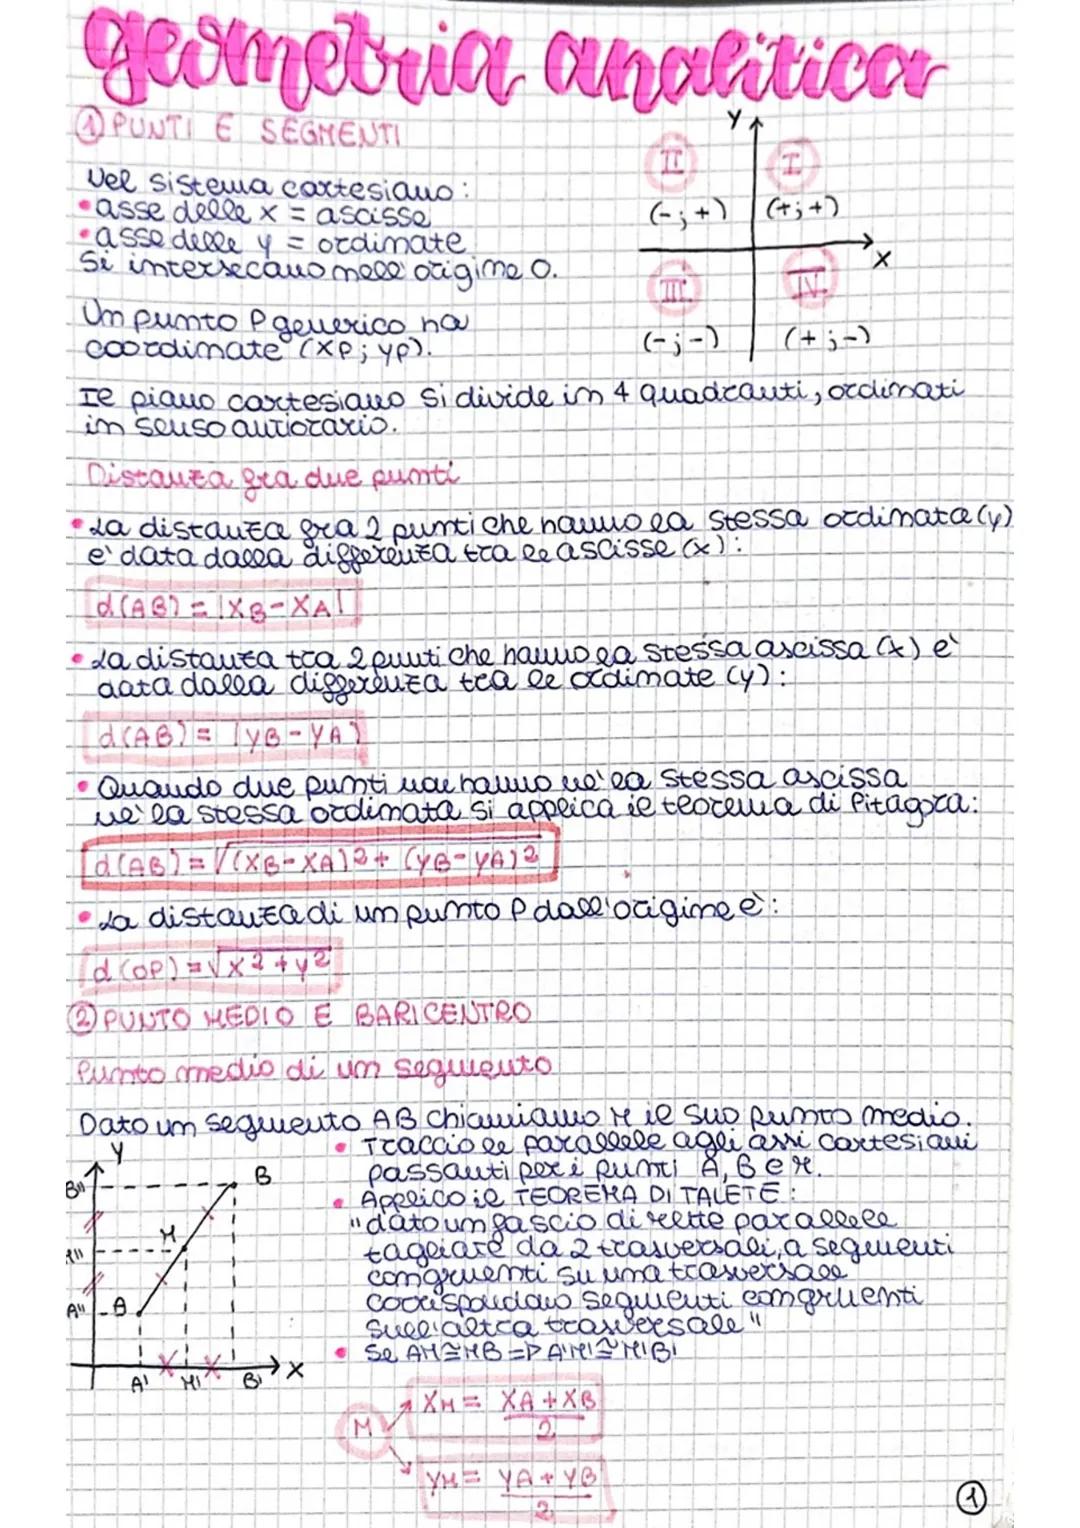 geometria analitica
① PUNTI E SEGMENTI
Nel sistema cartesiano:
• asse delle x = ascisse
• asse delle y = ordinate
Si intersecano nell'origine O.
Un punto P generico ha
coordinate (xP; yP).
Y
II
I
(-;+)
(+;+)
X
III
IV
(-;-)
(+;-)
Il piano cartesiano si divide in 4 quadranti, ordinati
in senso antiorario.
Distanza fra due punti
• La distanza fra 2 punti che hanno la stessa ordinata (y)
e' data dalla differenza tra le ascisse (x):
d(AB) = |XB-XA|
• La distanza tra 2 punti che hanno la stessa ascissa (x) e'
data dalla differenza tra le ordinate (y):
d(AB) = |YB-YA|
• Quando due punti non hanno ne' la stessa ascissa
ne' la stessa ordinata si applica il teorema di Pitagora:
d(AB) = √(XB-XA)2 + (YB-YA)2
• La distanza di un punto P dall'origine è:
d(OP) = √x2+y2
② PUNTO MEDIO E BARICENTRO
Punto medio di un segmento
Dato un segmento AB chiamiamo M il suo punto medio.
Y
B"
B
M
M"
A"
A
A'
M'
B'
X
• Traccio le parallele agli assi cartesiani
passanti per i punti A, B e M.
• Applico il TEOREMA DI TALETE:
"dato un fascio di rette parallele
tagliate da 2 trasversali, a segmenti
congruenti su una trasversale
corrispondono segmenti congruenti
sull'altra trasversale"
• Se AM≅MB => A'M'≅M'B'
M
XM = XA+XB
2
YM = YA+YB
2
1